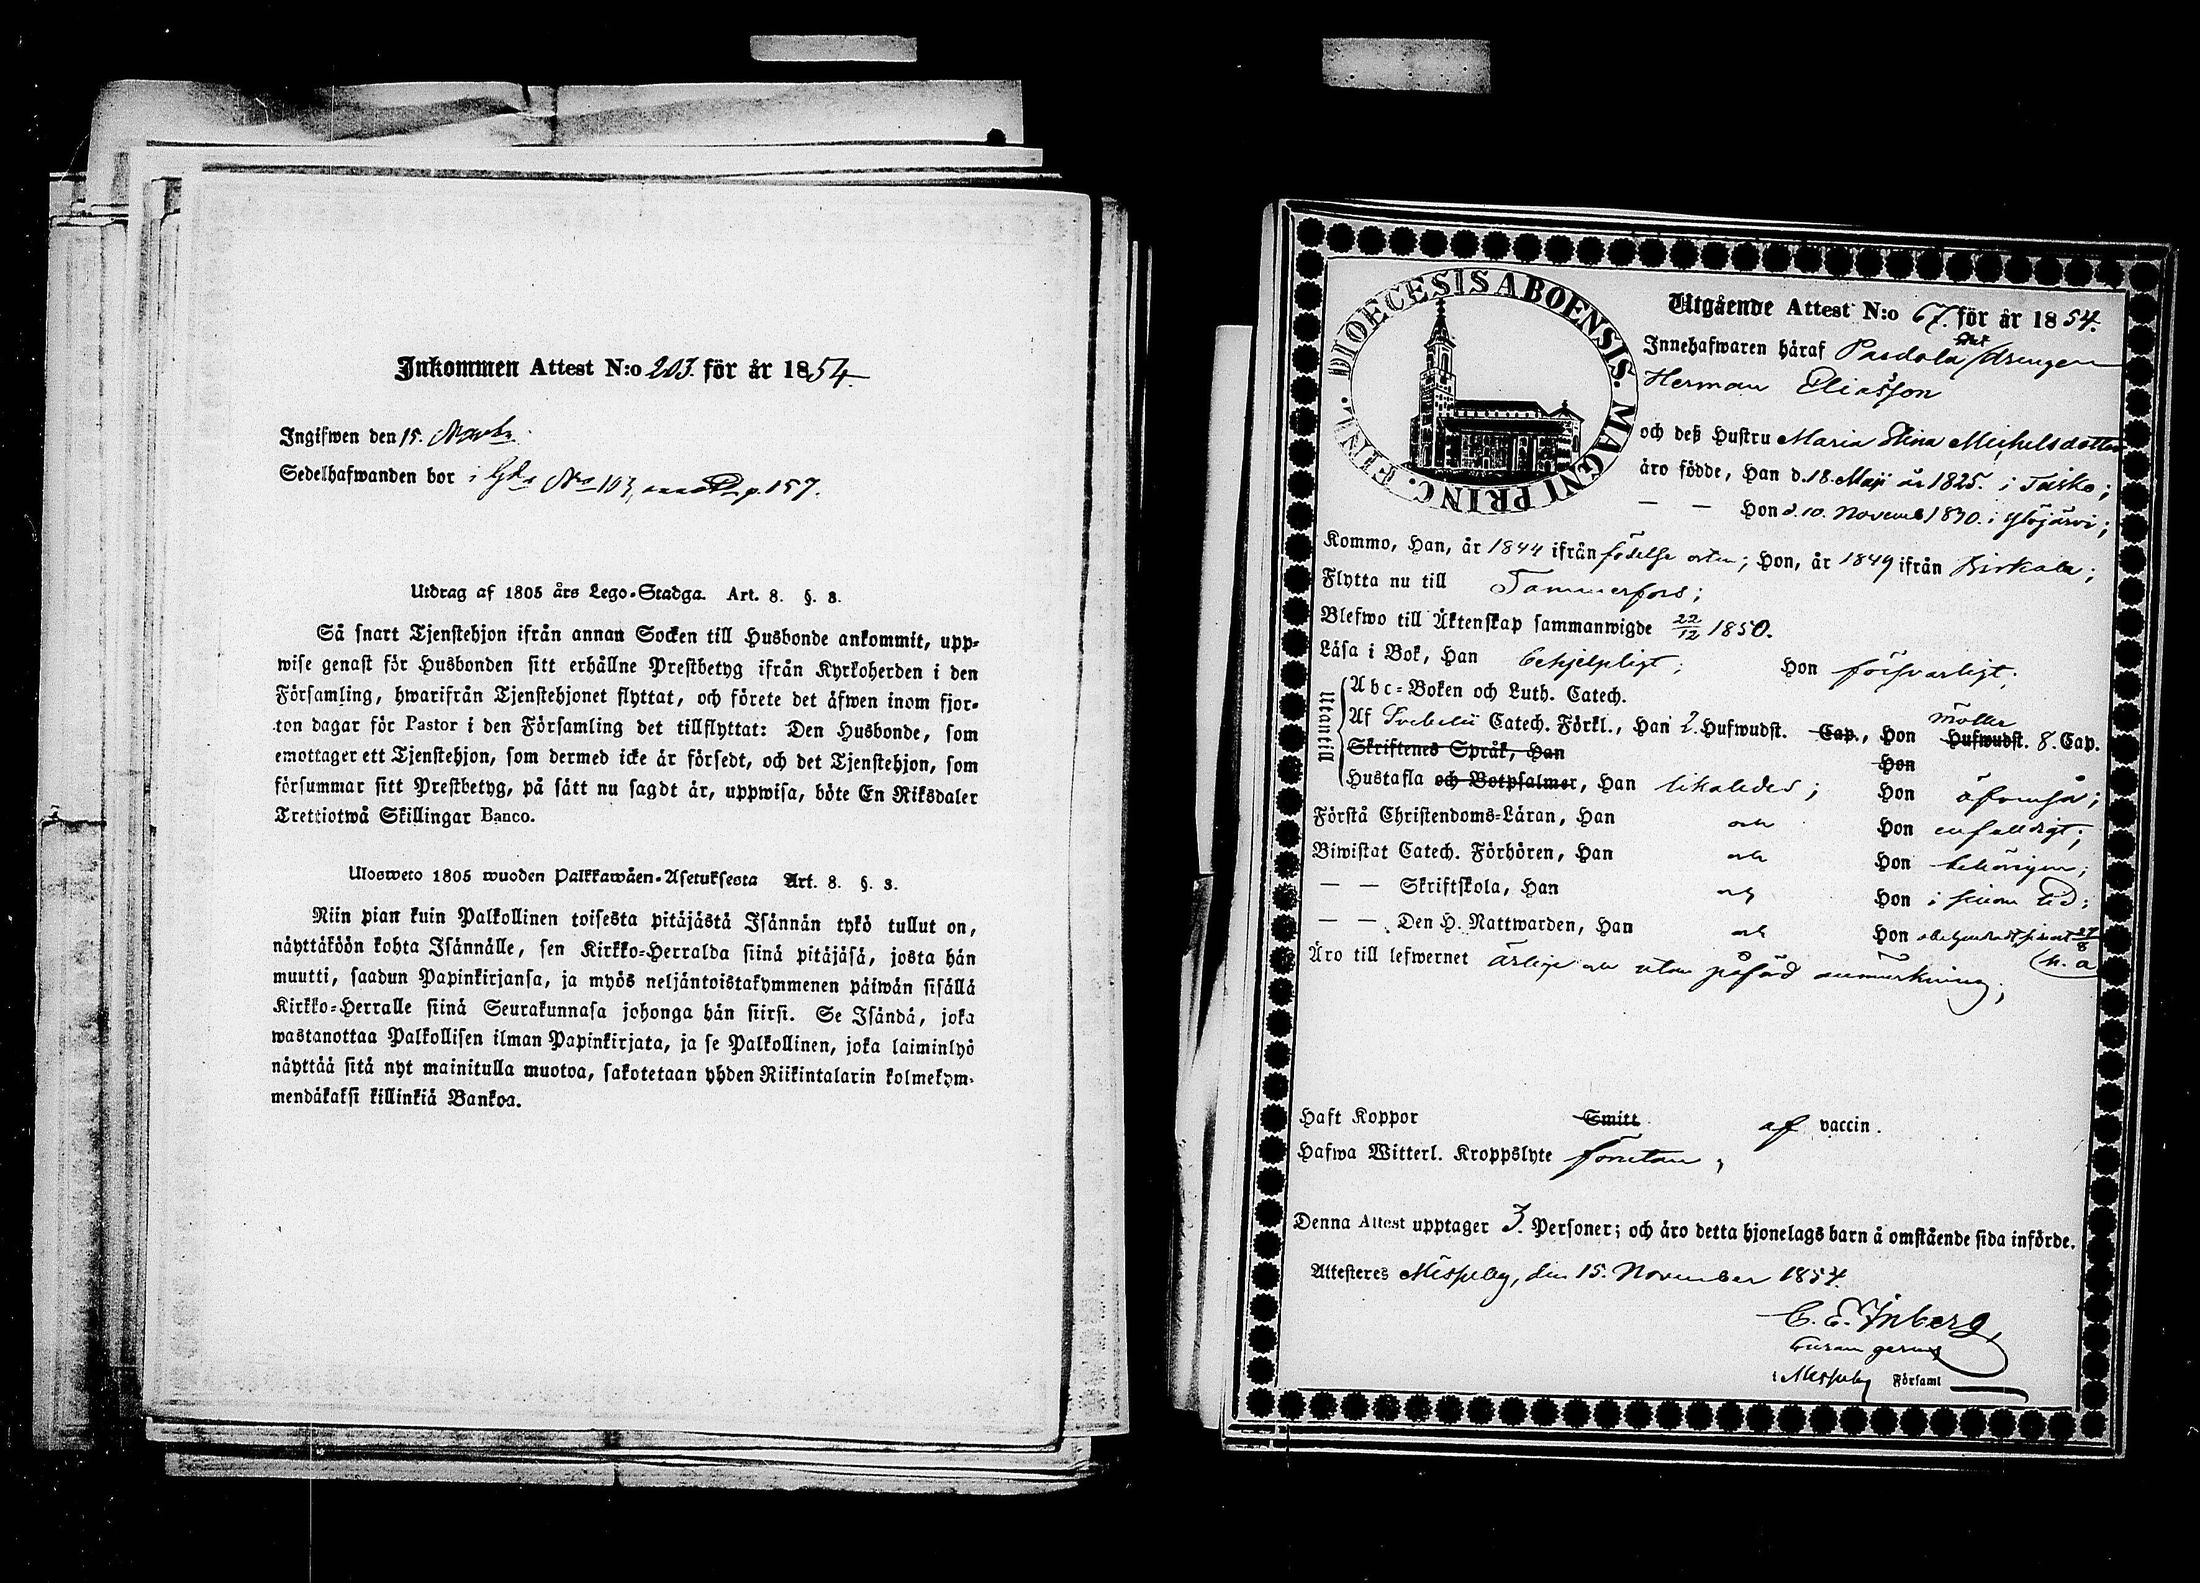 Inkommen Attest N:o 203. för år 1854.
Ingifwen den 15. 
Sedelhafwanden bor i No 103, p. 157.
Utdrag af 1805 års Lego-Stadga. Art. 8. §. 8.
Så snart Tjenstehjon ifrån annan Socken till Husbonde ankommit, upp-
wise genast för Husbonden sitt erhållne Prestbetyg ifrån Kyrkoherden i den
Församling, hwarifrån Tjenstehjonet flyttat, och förete det äfwen inom fjor-
ton dagar för Pastor i den Församling det tillflyttat: Den Husbonde, som
emottager ett Tjenstehjon, som dermed icke är försedt, och det Tjenstehjon, som
försummar sitt Prestbetyg, på sätt nu sagdt är, uppwisa, böte En Riksdaler
Trettiotwå Skillingar Banco.
Ulosweto 1805 wuoden Palkkawäen-Asetuksesta Art. 8. §. 8.
Niin pian kuin Palkollinen toisesta pitäjästä Isännän tykö tullut on,
näyttäköön kohta Isännälle, sen Kirkko-Herralda siinä pitäjäsä, josta hän
muutti, saadun Papinkirjansa, ja myös neljäntoistakymmenen päiwän sisällä
Kirkko-Herralle siinä Seurakunnasa johonga hän siirsi. Se Isändä, joka
wastanottaa Palkollisen ilman Papinkirjata, ja se Palkollinen, joka laiminlyö
näyttää sitä nyt mainitulla muotoa, sakotetaan yhden Riikintalarin kolmekym-
mendäkaksi killinkiä Bankoa.
DIOECESIS ABOENSIS. MAGNI PRINC. FINL.
Utgående Attest N:o 67. för år 1854.
Innehafwaren häraf drengen
Herman Eliasson
och deß Hustru Maria Stina Michelsdotter
äro födde, Han d. 18. Maji år 1825. i Teisko;
— — Hon d. 10. Novemb 1830. i Ylöjärvi;
Kommo, Han, år 1844 ifrån födelse orten; Hon, år 1849 ifrån Birkala;
Flytta nu till Tammerfors;
Blefwo till Äktenskap sammanwigde 22/12 1850.
Läsa i Bok, Han behjelpligt; Hon försvarligt;
Utantill
Abc-Boken och Luth. Catech.
Af Svebelii Catech. Förkl., Han 2. Hufwudst. Cap., Hon Hufwudst. 8. Cap.
Skriftenes Språk, Han Hon
Hustafla och Botpsalmer, Han likaledes; Hon äfvenså;
Förstå Christendoms-Läran, Han och Hon enfalldigt;
Biwistat Catech. Förhören, Han och Hon behörigen;
— — Skriftskola, Han och Hon i sinom tid;
— — Den H. Nattwarden, Han och Hon sist 27/8
h. a
Äro till lefwernet ärliga och utan påförd anmärkning;
Haft Koppor Smitt af vaccin.
Hafwa Witterl. Kroppslyte förutan;
Denna Attest upptager 3. Personer; och äro detta hjonelags barn å omstående sida införde.
Attesteres Messuby, den 15. November 1854.
C. E. Inberg,
Curam gerens
i Messuby Församl